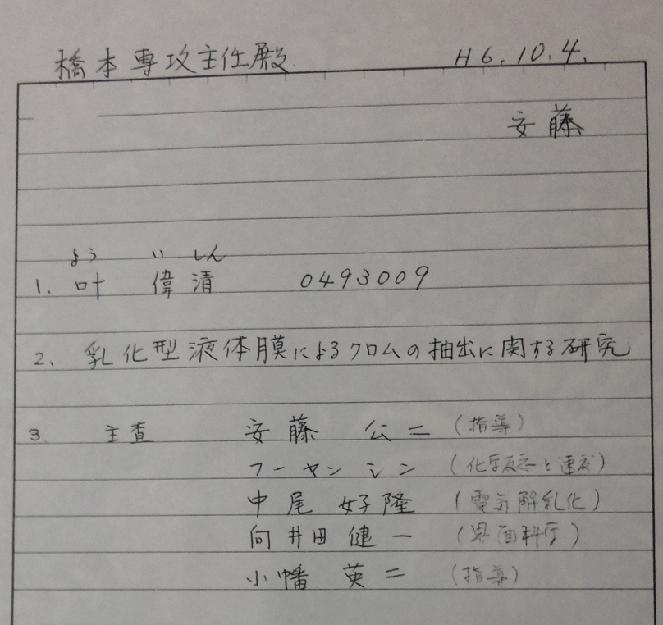 橋本専攻主任殿 H6.10.4.
安藤
よう いしん
1. 叶 偉清 0493009
2. 乳化型液体膜によるクロムの抽出に関する研究
3 主査 安藤 公二 (指導)
フーヤンシン (化学反応と速度)
中尾 好隆 (電気解乳化)
向井田 健一 (界面科学)
小幡 英二 (指導)